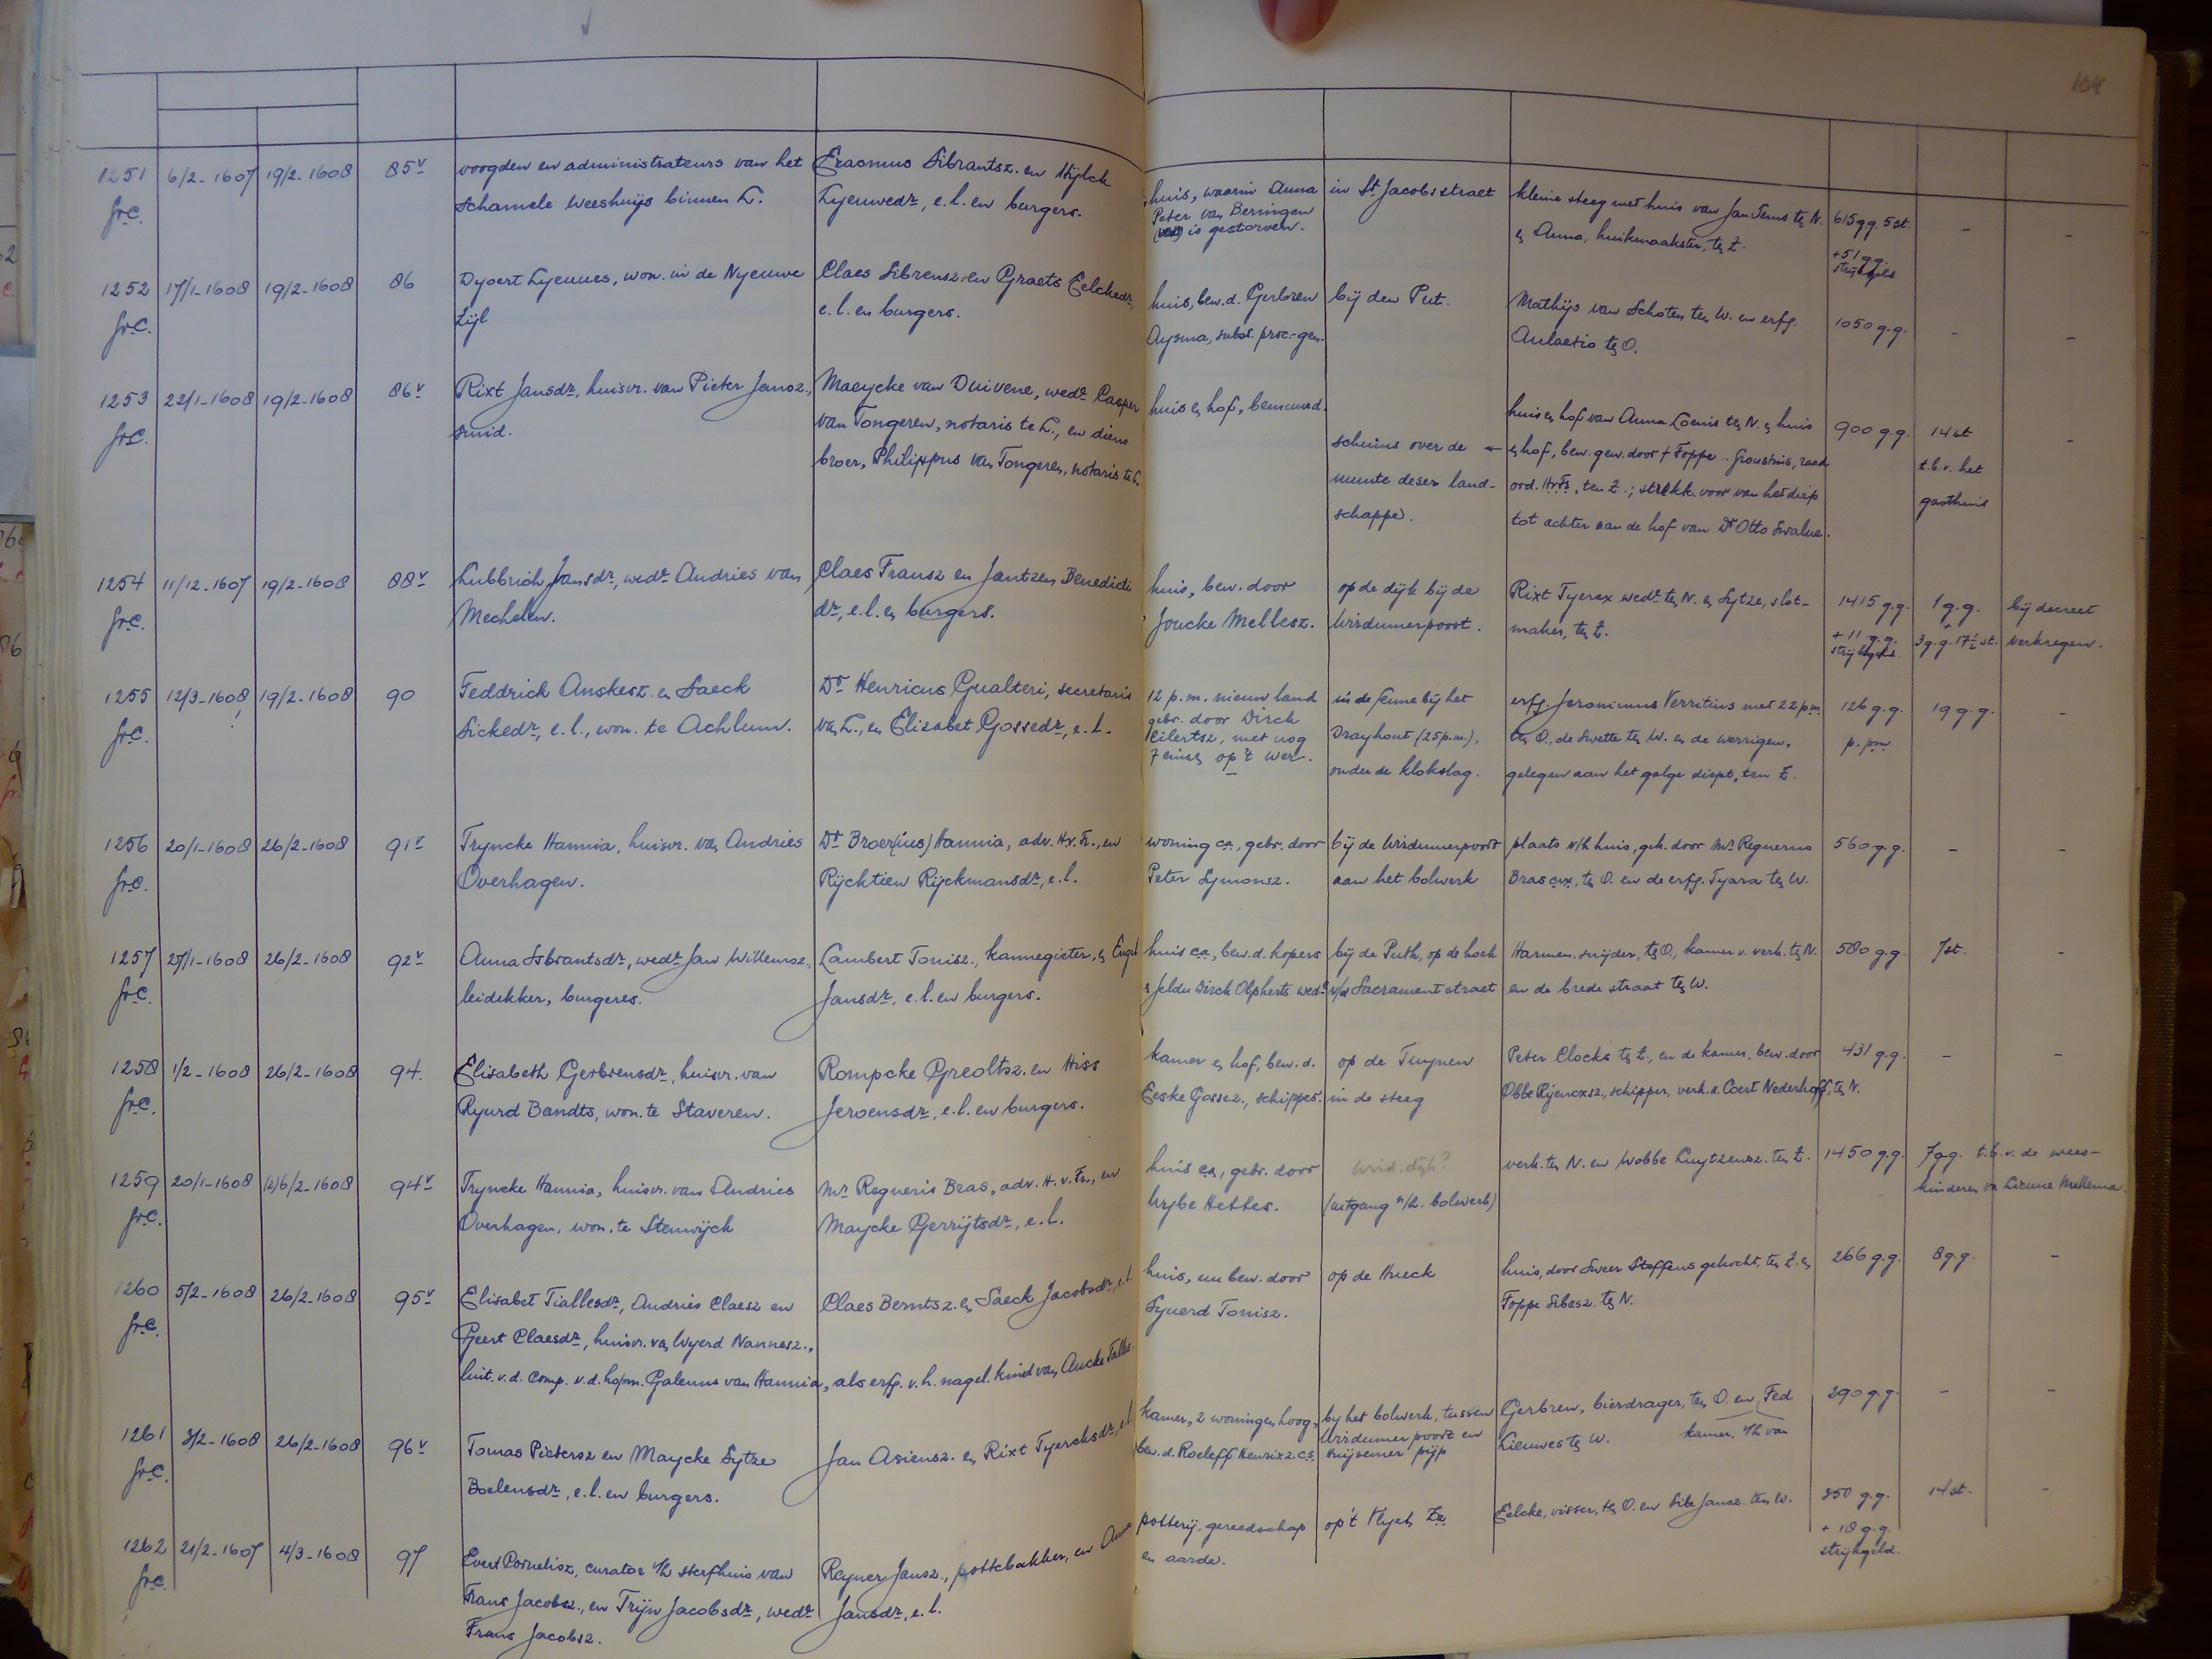 104
1251 6/2-1607 19/2-1608 85v voogden en administrateurs van het Erasmus Sibrantsz. en Hylck huis, waarin Anna in St. Jacobsstraet kleine steeg met huis van Jan Tems ten N. 615 g.g. 5 st. - -
fr.C. schamele weeshuijs binnen L. Lyeuwedr, e.l. en burgers. Peter van Beringen en Anna, huikmaakster, ten Z. +51 g.g.
is gestorven. strijkgeld
1252 17/1-1608 19/2-1608 86 Dyoert Lyeuues, won. in de Nyeuwe Claes Sibrensz. en Graets Eelckedr, huis, bew. d. Gerbren bij den Put. Mathijs van Schoten ten W. en erfg. 1050 g.g. - -
fr.C. Zijl e.l. en burgers. Aysma, subst. proc.-gen. Aulaesio ten O.
1253 22/1-1608 19/2-1608 86v Rixt Jansdr, huisvr. van Pieter Jansz., Maeycke van Duivene, wedr Casper huis en hof, bemuurd. huis en hof van Anna Loenis ten N. en huis 900 g.g. 14 st -
fr.C. smid. van Tongeren, notaris te L., en diens scheins over de en hof, bew. gew. door † Foppe .. Grousthis, raad t.b.v. het
broer, Philippus van Tongeren, notaris te L. munte deser land- ord. HvFr, ten Z.; strekk. voor van het diep gasthuis
schappe. tot achter aan de hof van Dr Otto Swalue.
1254 11/12-1607 19/2-1608 88v Lubbrich Jansdr, wedr Andries van Claes Fransz en Jantzen Benedicti huis, bew. door op de dyk bij de Rixt Tyerex wedr ten N. en Sytze, slot- 1415 g.g. 1 g.g. bij decreet
fr.C. Mechelen. dr, e.l. en burgers. Joucke Mellesz. Wirdumerpoort. maker, ten Z. + 11 g.g. + 3 g.g. 17½ st. verkregen.
strijkgeld.
1255 12/3-1608 19/2-1608 90 Feddrick Anskesz. en Saeck Dr Henricus Gualteri, secretaris 12 p.m. nieuw land in de fenne bij het erfg. Jeronimus Verritius met 22 p.m. 126 g.g. 19 g.g. -
! gebr. door Dirck
fr.C. Sickedr, e.l., won. te Achlum. van L., en Elizabet Gossedr, e.l. Eilertsz, met nog Drayhout (25 p.m.), ten O., de Swette ten W. en de werrigen, p. pm
7 einsen op 't wer. onder de klokslag. gelegen aan het galge diept, ten Z.
1256 20/1-1608 26/2-1608 91v Tryncke Hannia, huisvr. van Andries Dr Broer(ius) Hannia, adv. Hv. Fr., en woning ca, gebr. door bij de Wirdumerpoort plaats v/h huis, gek. door Mr Regnerus 560 g.g. - -
fr.C. Overhagen. Rijcktien Rijckmansdr, e.l. Peter Symonsz. aan het bolwerk Bras c.ux., ten O. en de erfg. Tyara ten W.
1257 27/1-1608 26/2-1608 92v Anna Isbrantsdr, wedr Jan Willemsz., Lambert Tonisz., kannegieter, en Engel huis ca, bew. d. kopers bij de Puth, op de hoek Harmen snijder, ten O., kamer v. verk. ten N. 580 g.g. 7 st. -
fr.C. leidekker, burgeres. Jansdr, e.l. en burgers. en Jeldu Dirck Olpherts wedr v/d Sacramentstraet en de brede straat ten W.
1258 1/2-1608 26/2-1608 94. Elisabeth Gerbrensdr, huisvr. van Rompcke Greoltsz. en Hiss kamer en hof, bew. d. op de Tuynen Peter Clocks ten Z., en de kamer, bew. door 431 g.g. - -
fr.C. Ryurd Bandts, won. te Staveren. Jeroensdr, e.l. en burgers. Eeske Gossez., schipper. in de steeg Obbe Rijencxsz., schipper, verk. a. Coert Nederhoff, ten N.
1259 20/1-1608 (2)6/2-1608 94v Tryncke Hannia, huisvr. van Andries Mr Regneris Bras, adv. H. v. Fr., en huis ca, gebr. door wird. dijk? verk. ten N. en Wobbe Luytzensz. ten Z. 1450 g.g. 7 g.g. t.b.v. de wees-
fr.C. Overhagen, won. te Stenwijck Maycke Gerrijtsdr, e.l. Wybe Hettes. (uitgang n/h. bolwerk) kinderen van Lieuue Mellema.
1260 5/2-1608 26/2-1608 95v Elisabet Tiallesdr, Andries Claesz en Claes Berntsz. en Saeck Jacobsdr, e.l. huis, nu bew. door op de Hueck huis, door Sweer Steffens gekocht, ten Z. en 266 g.g. 8 g.g. -
fr.C. Geert Claesdr, huisvr. van Wyerd Nannesz., Syuerd Tonisz. Foppe Sibesz. ten N.
luit. v.d. comp. v.d. hopm. Galenus van Hannia, als erfg. v.h. nagel. kind van Aucke Tialles.
1261 3/2-1608 26/2-1608 96v Tomas Pietersz en Maycke Sytze Jan Asiensz. en Rixt Tyercksdr, e.l. kamer, 2 woningen hoog, by het bolwerk, tussen Gerbren, bierdrager, ten O. en Fed 290 g.g. - -
fr.C. Boelensdr, e.l. en burgers. bew. d. Roeleff Henrixz. c.s. Wirdumer poort en Lieuwes ten W. kamer, v/h van
snijsemer pijp
1262 21/2-1607 4/3-1608 97 Evert Cornelisz, curator v/h sterfhuis van Reyner Jansz., pottebakker, en Anna potterij, gereedschap op 't Vlyet, Za Eelcke, visser, ten O. en Sibe Jansz. ten W. 350 g.g. 14 st. -
fr.C. Frans Jacobsz., en Trijn Jacobsdr, wedr Jansdr, e.l. en aarde. + 18 g.g.
Frans Jacobsz. strijkgeld.